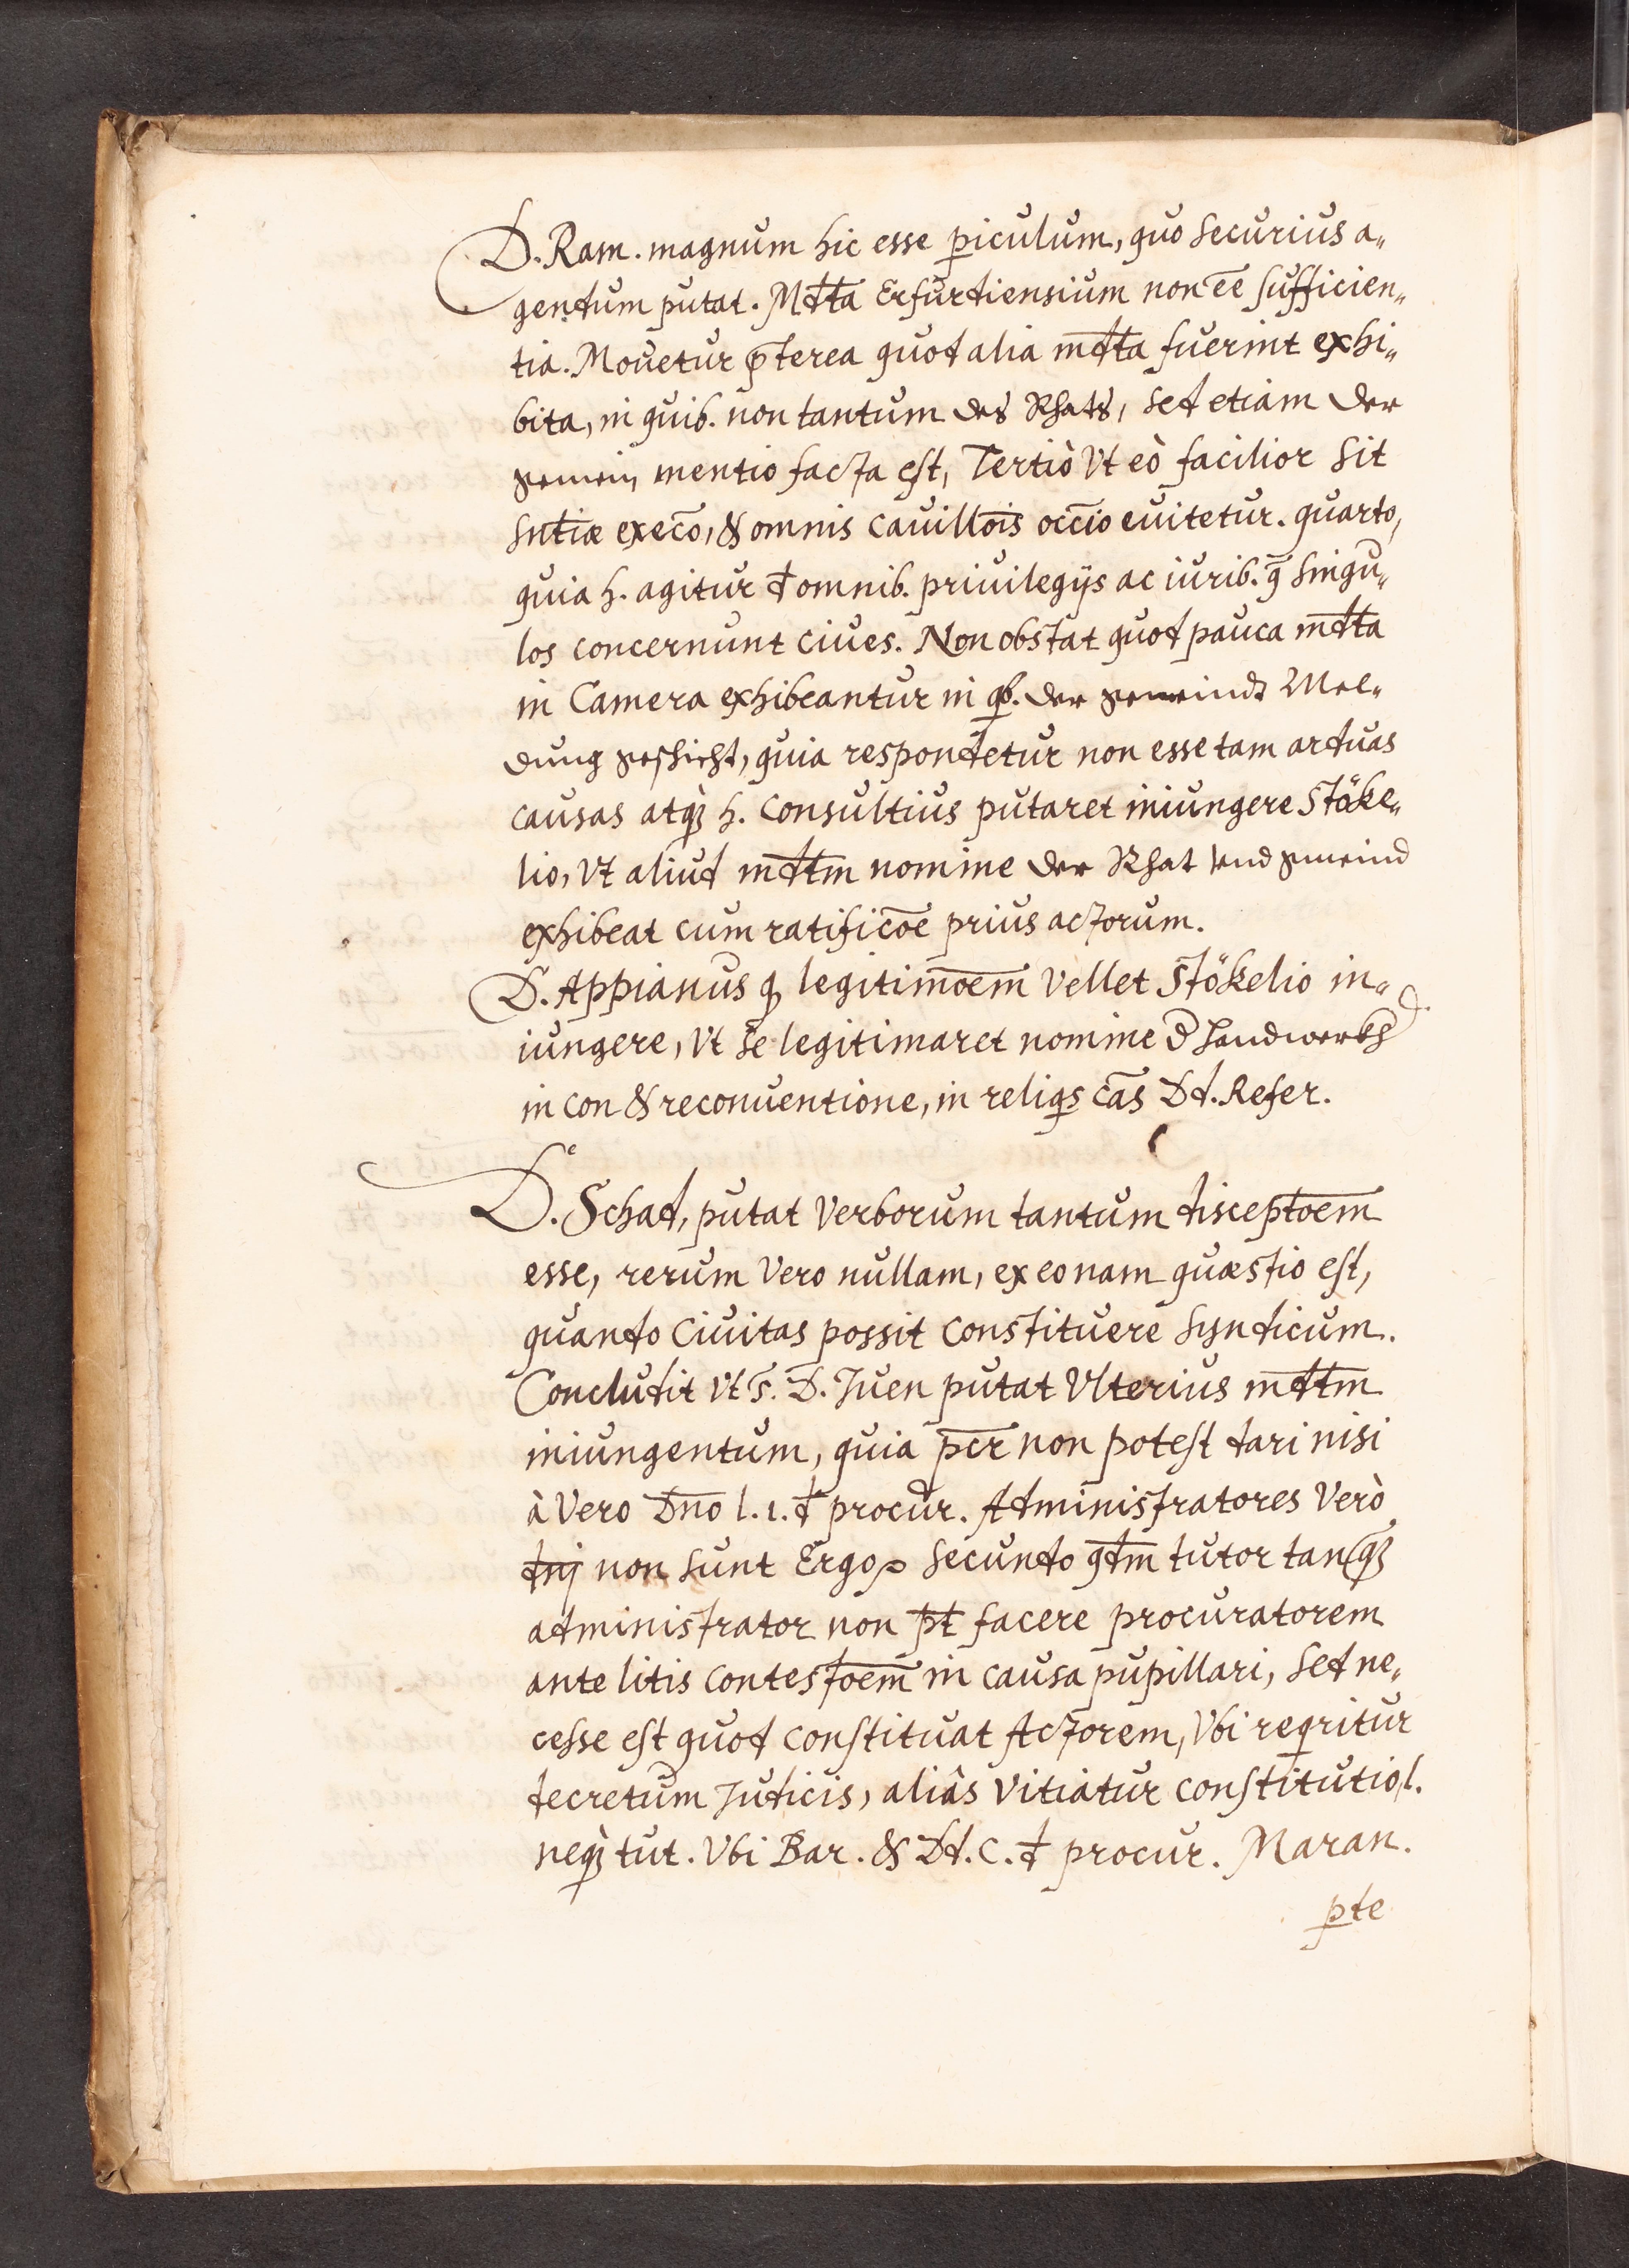 D. Ram. magnum hic esse p̱iculum, quo securius a„
gendum putat. Mdta̅ Erfurdiensium non ee̅ suffici̇en„
tia. Mouetur p̅terea quod alia mdta̅ fuerint exhi„
bita, in quib. non tantum des Rhats, sed etiam der
gemein mentio facta est, Tertiò vt eò facilior sit
sntiæ̅ execo̅, & omnis cauillois̅ occio̅ euitetur. quarto,
quia h. agitur đ omnib. priuilegijs ac iurib. q̅ singu„
los concernunt ciues. Non obstat quod pauca mdta̅
in Camera exhibeantur in qb. der gemeindt Mel„
dung geschicht, quia respondetur non esse tam arduas
causas atq̨ h. consultius putaret iniungere Stöke„
lio, vt aliud mdtm̅ nomine der Rhat vnd gmeind
exhibeat cum ratificoe̅ prius actorum.
D. Appianus q̨ legitimoem̅ vellet Stökelio in„
iungere, vt se legitimaret nomine d̅ handwerkh
in con & reconuentione, in reliqs cas̅ Dd. Refer.
D. Schad, putat verborum tantum disceptoem̅
esse, rerum vero nullam, ex eo nam quæstio est,
quando Ciuitas possit constituere syndicum.
Concludit vt s. D. Juen putat vlterius mdtm̅
iniungendum, quia pcr̅ non potest dari nisi
à vero Dno̅ l. 1. đ procur. Administratores verò
dnj̅ non sunt Ergo secundo qdm̅ tutor tanq̨
administrator non pt̅ facere procuratorem
ante litis contestoem̅ in causa pupillari, sed ne„
cesse est quod constituat Actorem, vbi reqritur
decretum Judicis, aliâs vitiatur constitutio, l.
neq̨ tut. vbi Bar. & Dd. C. đ procur. Maran.
p̱te